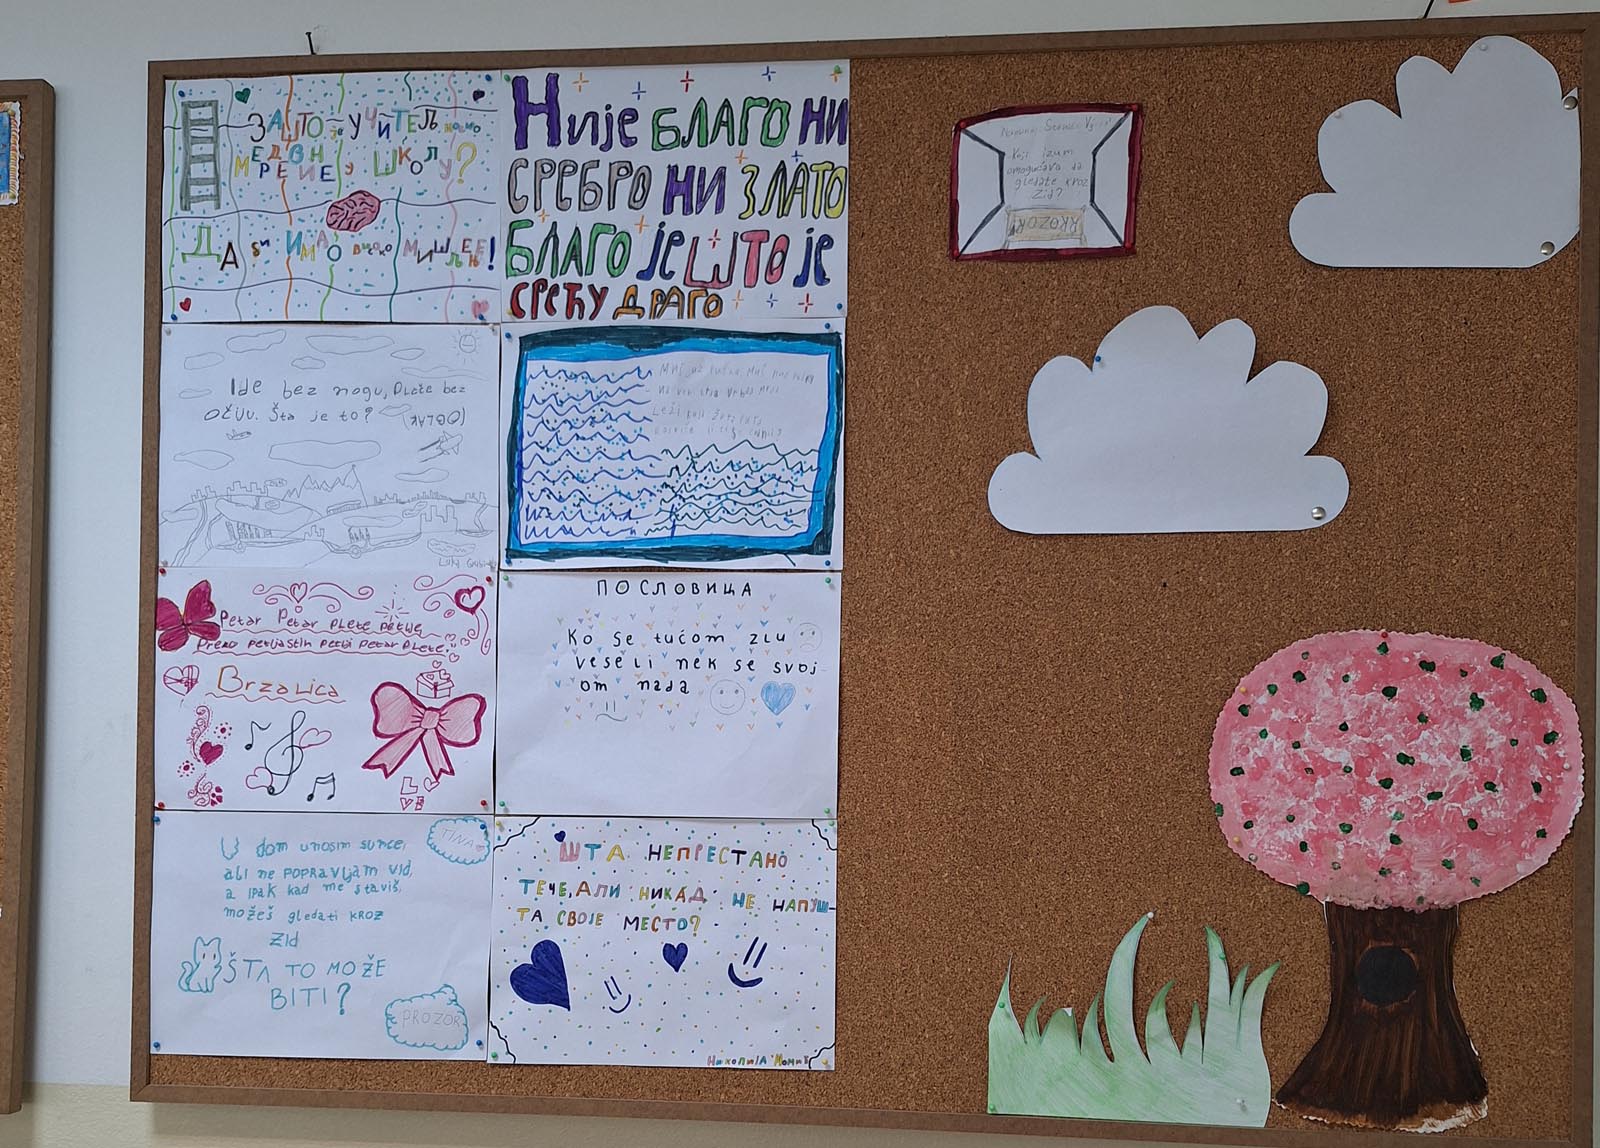 ЗАШТО је УЧИТЕЉ носио
МЕРДЕВИНЕ у ШКОЛУ?
ДА би ИМАО високо МИШЉЕЊЕ!
Није БЛАГО НИ
СРЕБРО НИ ЗЛАТО
БЛАГО јЕ ШТО јЕ
СРЕЋУ ДРАГО
Ide bez nogu, plače bez
OČIJU. Šta je to? (OBLAK)
Luka
Miš uz
Leži
Petar Petar plete petlje,
Preko petljastih petlji petar plete."
Brzalica
LOVE
ПОСЛОВИЦА
Ko se tuđom zlu
veseli nek se svoj-
om nada
TINA
U dom unosim sunce,
ali ne POPRAVLJAM VID,
a IPAK kad me staviš,
možeš gledati KROZ
ZID
ŠTA TO MOŽE
BITI?
PROZOR
ШТА НЕПРЕСТАНО
ТЕЧЕ, АЛИ НИКАД НЕ НАПУШ-
ТА СВОЈЕ МЕСТО?
Koji izum
omogućava da
gledate kroz
zid?
PROZOR